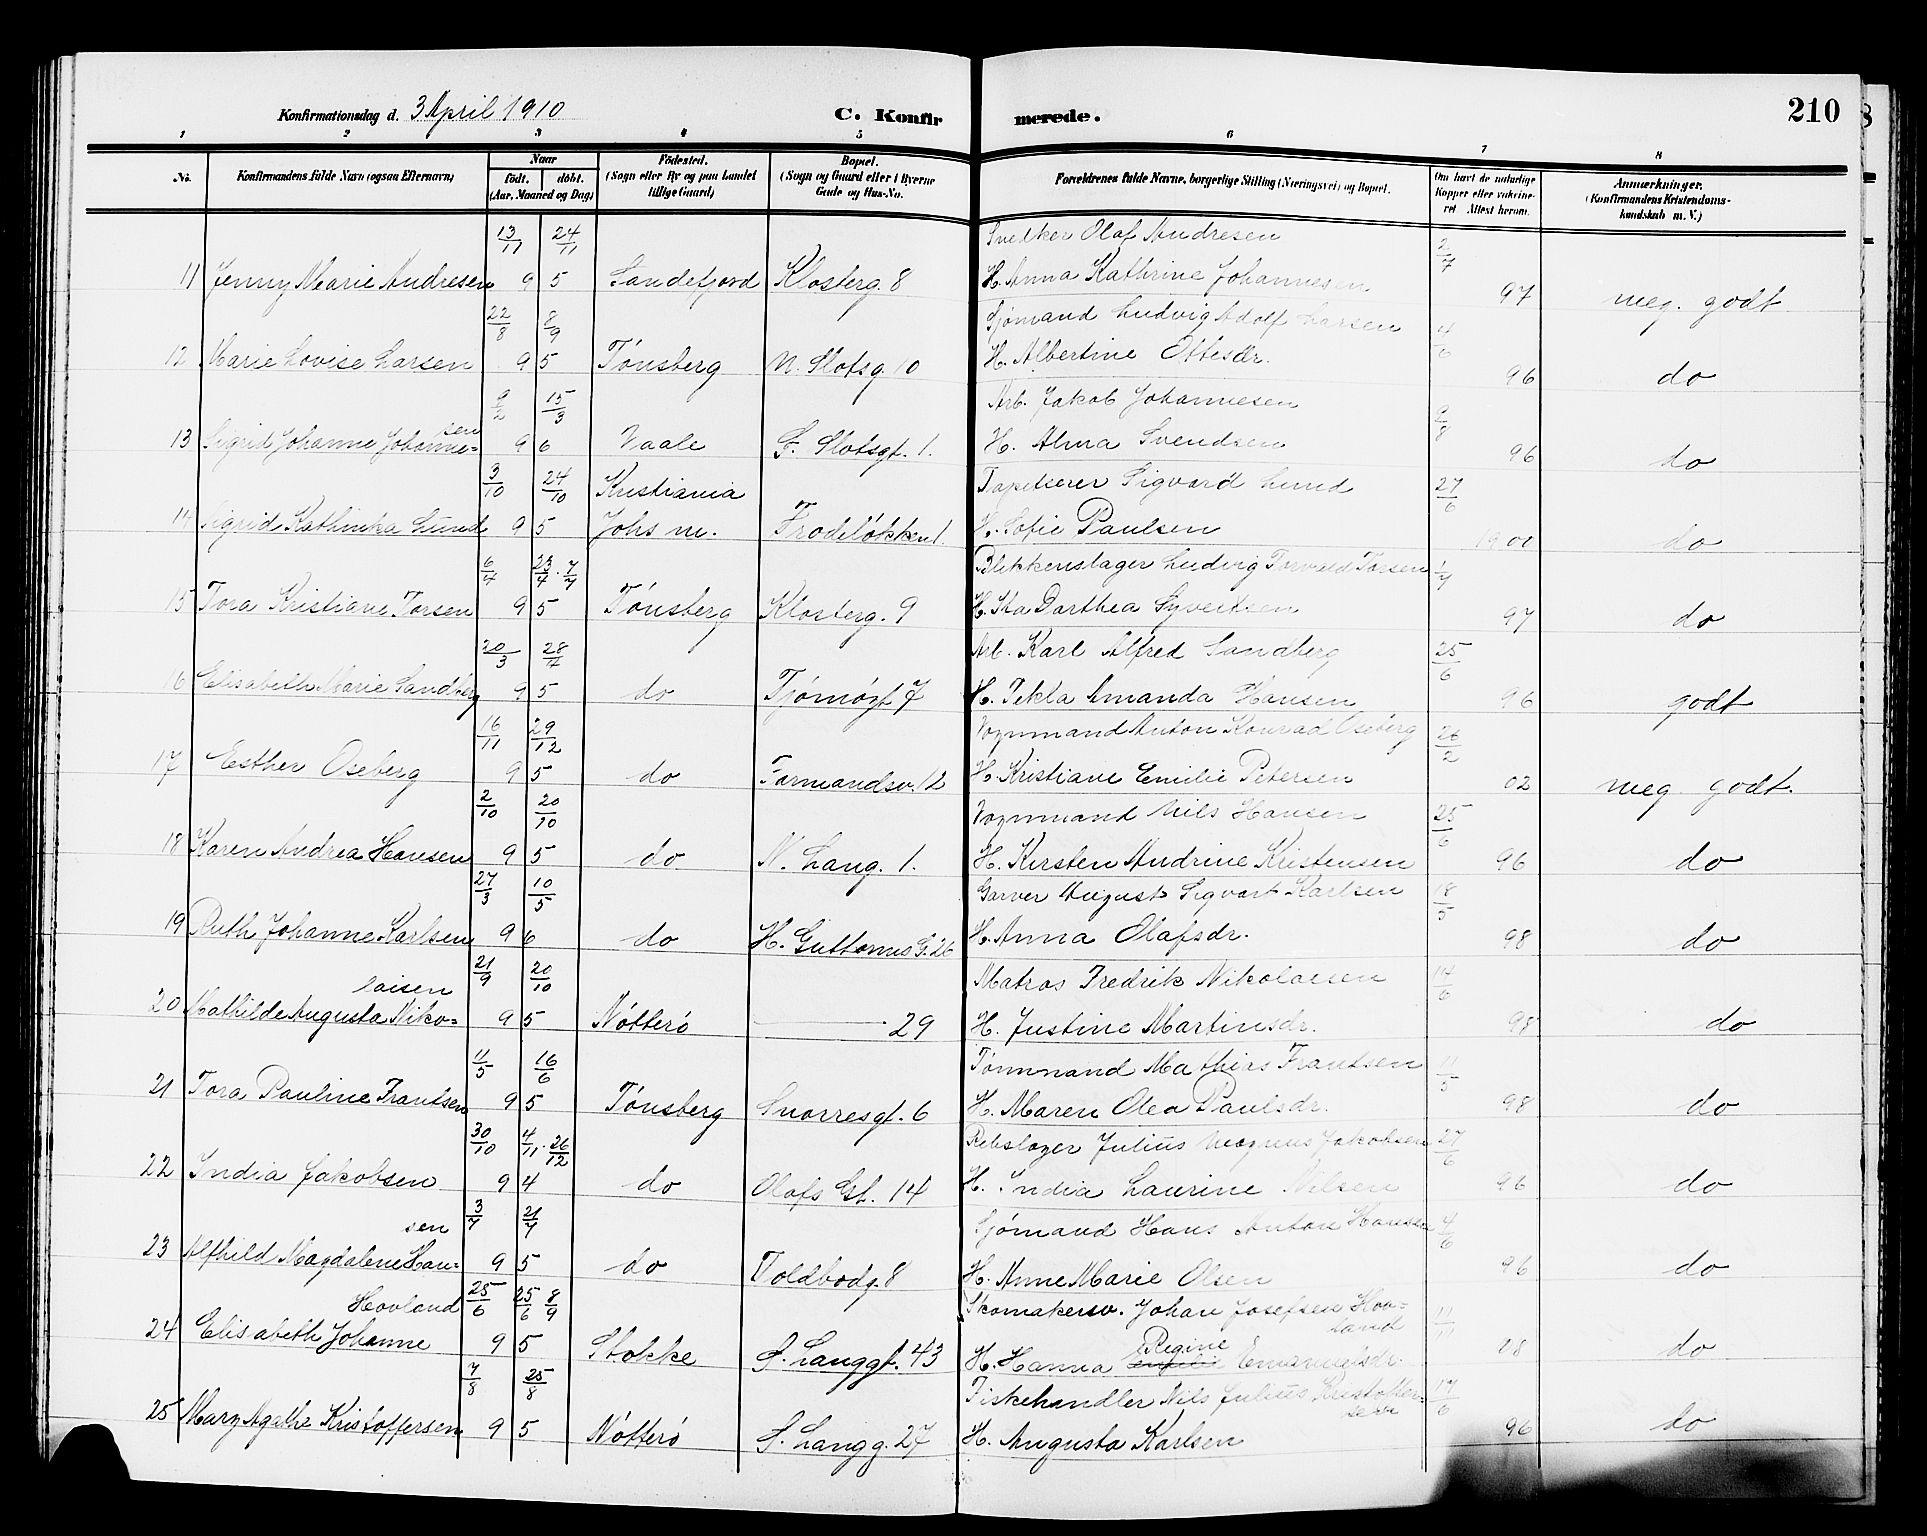 Konfirmationsdag d. 3 April 1910 C. Konfir merede. 210
1 2 3 4 5 6 7 8
No. Konfirmandens fulde Navn (ogsaa Efternavn) Naar født. døbt. (Aar, Maaned og Dag) Fødested. (Sogn eller By og paa Landet tillige Gaard) Bopæl. (Sogn og Gaard eller i Byerne Gade og Hus-No. Forældrenes fulde Navne, borgerlige Stilling (Næringsvei) og Bopæl. Om havt de naturlige Kopper eller vaccineret Attest herom. Anmærkninger. (Konfirmandens Kristendomskundskab m. V.)
13/11 24/11 Snedker Olaf Andresen 2/7
11 Jenny Marie Andresen 9 5 Sandefjord Klosterg. 8 H. Anna Kathrine Johannesen 97 meg. godt
22/8 8/9 Sjømand Ludvig Adolf Larsen 4/6
12 Marie Lovise Larsen 9 5 Tønsberg N. Slotsg. 10 H. Albertine Ottesdr. 96 do
9/2 15/3 Arb. Jakob Johannesen 9/8
sen
13 Sigrid Johanne Johanne= 9 6 Vaale F. Slotsgt. 1. H. Alma Svendsen 96 do
3/10 24/10 Kristiania Tapetserer Sigvard Lund 27/6
14 Sigrid Kathinka Lund 9 5 Johs m. Frodeløkken 1. H. Sofie Paulsen 1900 do
6/4 23/4 · 7/7 Blikkenslager Ludvig Torvald Torsen 1/7
15 Tora Kristiane Torsen 9 5 Tønsberg Klosterg. 9 H. Ida Dorthea Syvertsen 97 do
20/3 28/4 Arb. Karl Alfred Sandberg 25/6
16 Elisabeth Marie Sandberg 9 5 do Tjømøgt 7 H. Tekla Amanda Hansen 96 godt
16/11 29/12 Vognmand Anton Konrad Oseberg 26/2
17 Esther Oseberg 9 5 do Farmandsv. 12 H. Kristiane Emilie Petersen 02 meg. godt.
2/10 20/10 Vognmand Nils Hansen 25/6
18 Karen Andrea Hansen 9 5 do. N. Lang. 1. H. Kirsten Andrine Kristensen 96 do
27/3 10/5 Garver August Sigvart Karlsen 18/5
19 Ruth Johanne Karlsen 9 6 do H. Guttorms G. 26 H. Anna Olafsdr. 98 do
21/9 20/10 Matros Fredrik Nikolaesen 14/6
laisen
20 Mathilde Augusta Niko= 9 5 Nøtterø — 29 H. Justine Martinsdr. 98 do
11/5 16/6 Tømmand Mathias Frantsen 11/5
21 Tora Pauline Frantsen 9 5 Tønsberg Snorresgt. 6 H. Maren Olea Paulsdr. 98 do
30/10 4/11 · 26/12 Rebslager Julius Magnus Jakobsen 27/6
22 India Jakobsen 9 4 do Olafs Gt. 14 H. India Laurine Nilsen 96 do
3/7 21/7 Sjømand Hans Anton Hansen 4/6
sen
23 Alfhild Magdalene Han= 9 5 do Toldbodg. 8 H. Anne Marie Olsen 96 do
Hovland 25/6 25/6 8/9 Skomakersv. Johan Josefsen Hov= land 11/11
24 Elisabeth Johanne 9 5 Stokke S. Langgt. 43 H. Hanna Regine Emanuelsdr. 08 do
7/8 25/8 Fiskehandler Nils Julius Kristoffer= sen 17/6
25 Mary Agathe Kristoffersen 9 5 Nøtterø S. Langg. 27 H. Augusta Karlsen 96 do